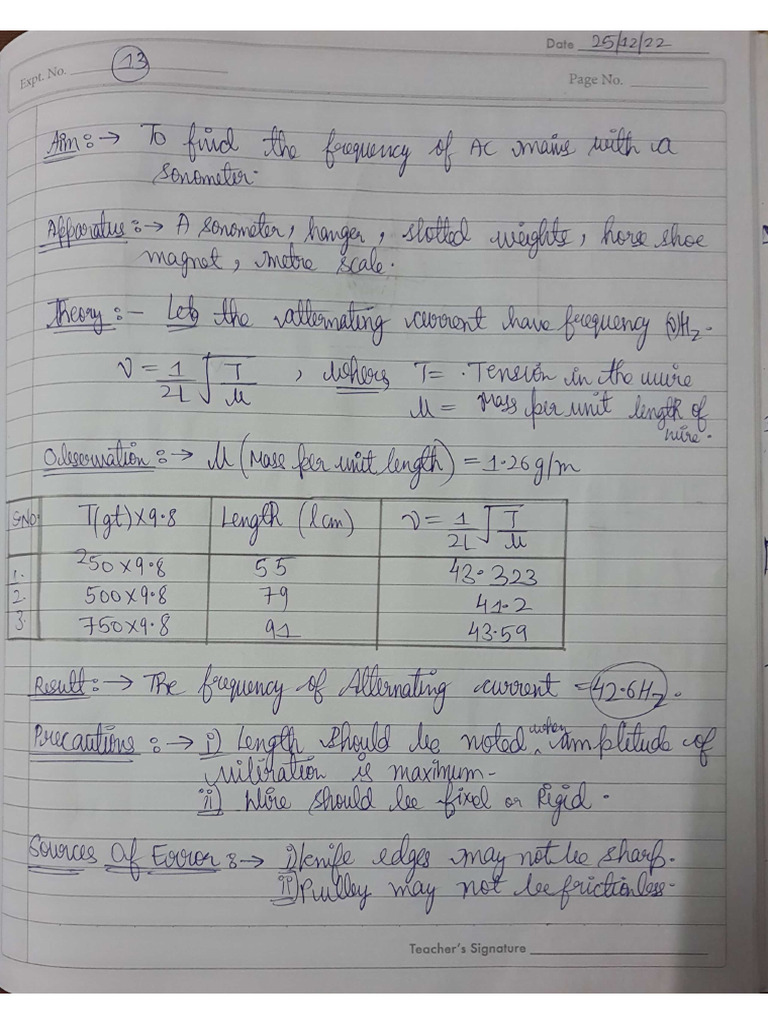 Date 25/12/22
Expt. No. 13
Page No.
Aim :→ To find the frequency of AC mains with a
sonometer.
Apparatus :→ A sonometer, hanger, slotted weights, horse shoe
magnet, metre scale.
Theory :- Let the alternating current have frequency ν Hz.
ν = 1/2L √T/μ , where T = Tension in the wire
μ = Mass per unit length of
wire.
Observation :→ μ (Mass per unit length) = 1.26 g/m
S.NO. T(gt)×9.8 Length (l cm) ν = 1/2L √T/μ
1. 250×9.8 55 43.323
2. 500×9.8 79 41.2
3. 750×9.8 91 43.59
Result :→ The frequency of Alternating current = 42.6Hz.
Precautions :→ i) Length should be noted when amplitude of
vibration is maximum.
ii) Wire should be fixed or Rigid.
Sources Of Error :→ i) Knife edges may not be sharp.
ii) Pulley may not be frictionless.
Teacher's Signature